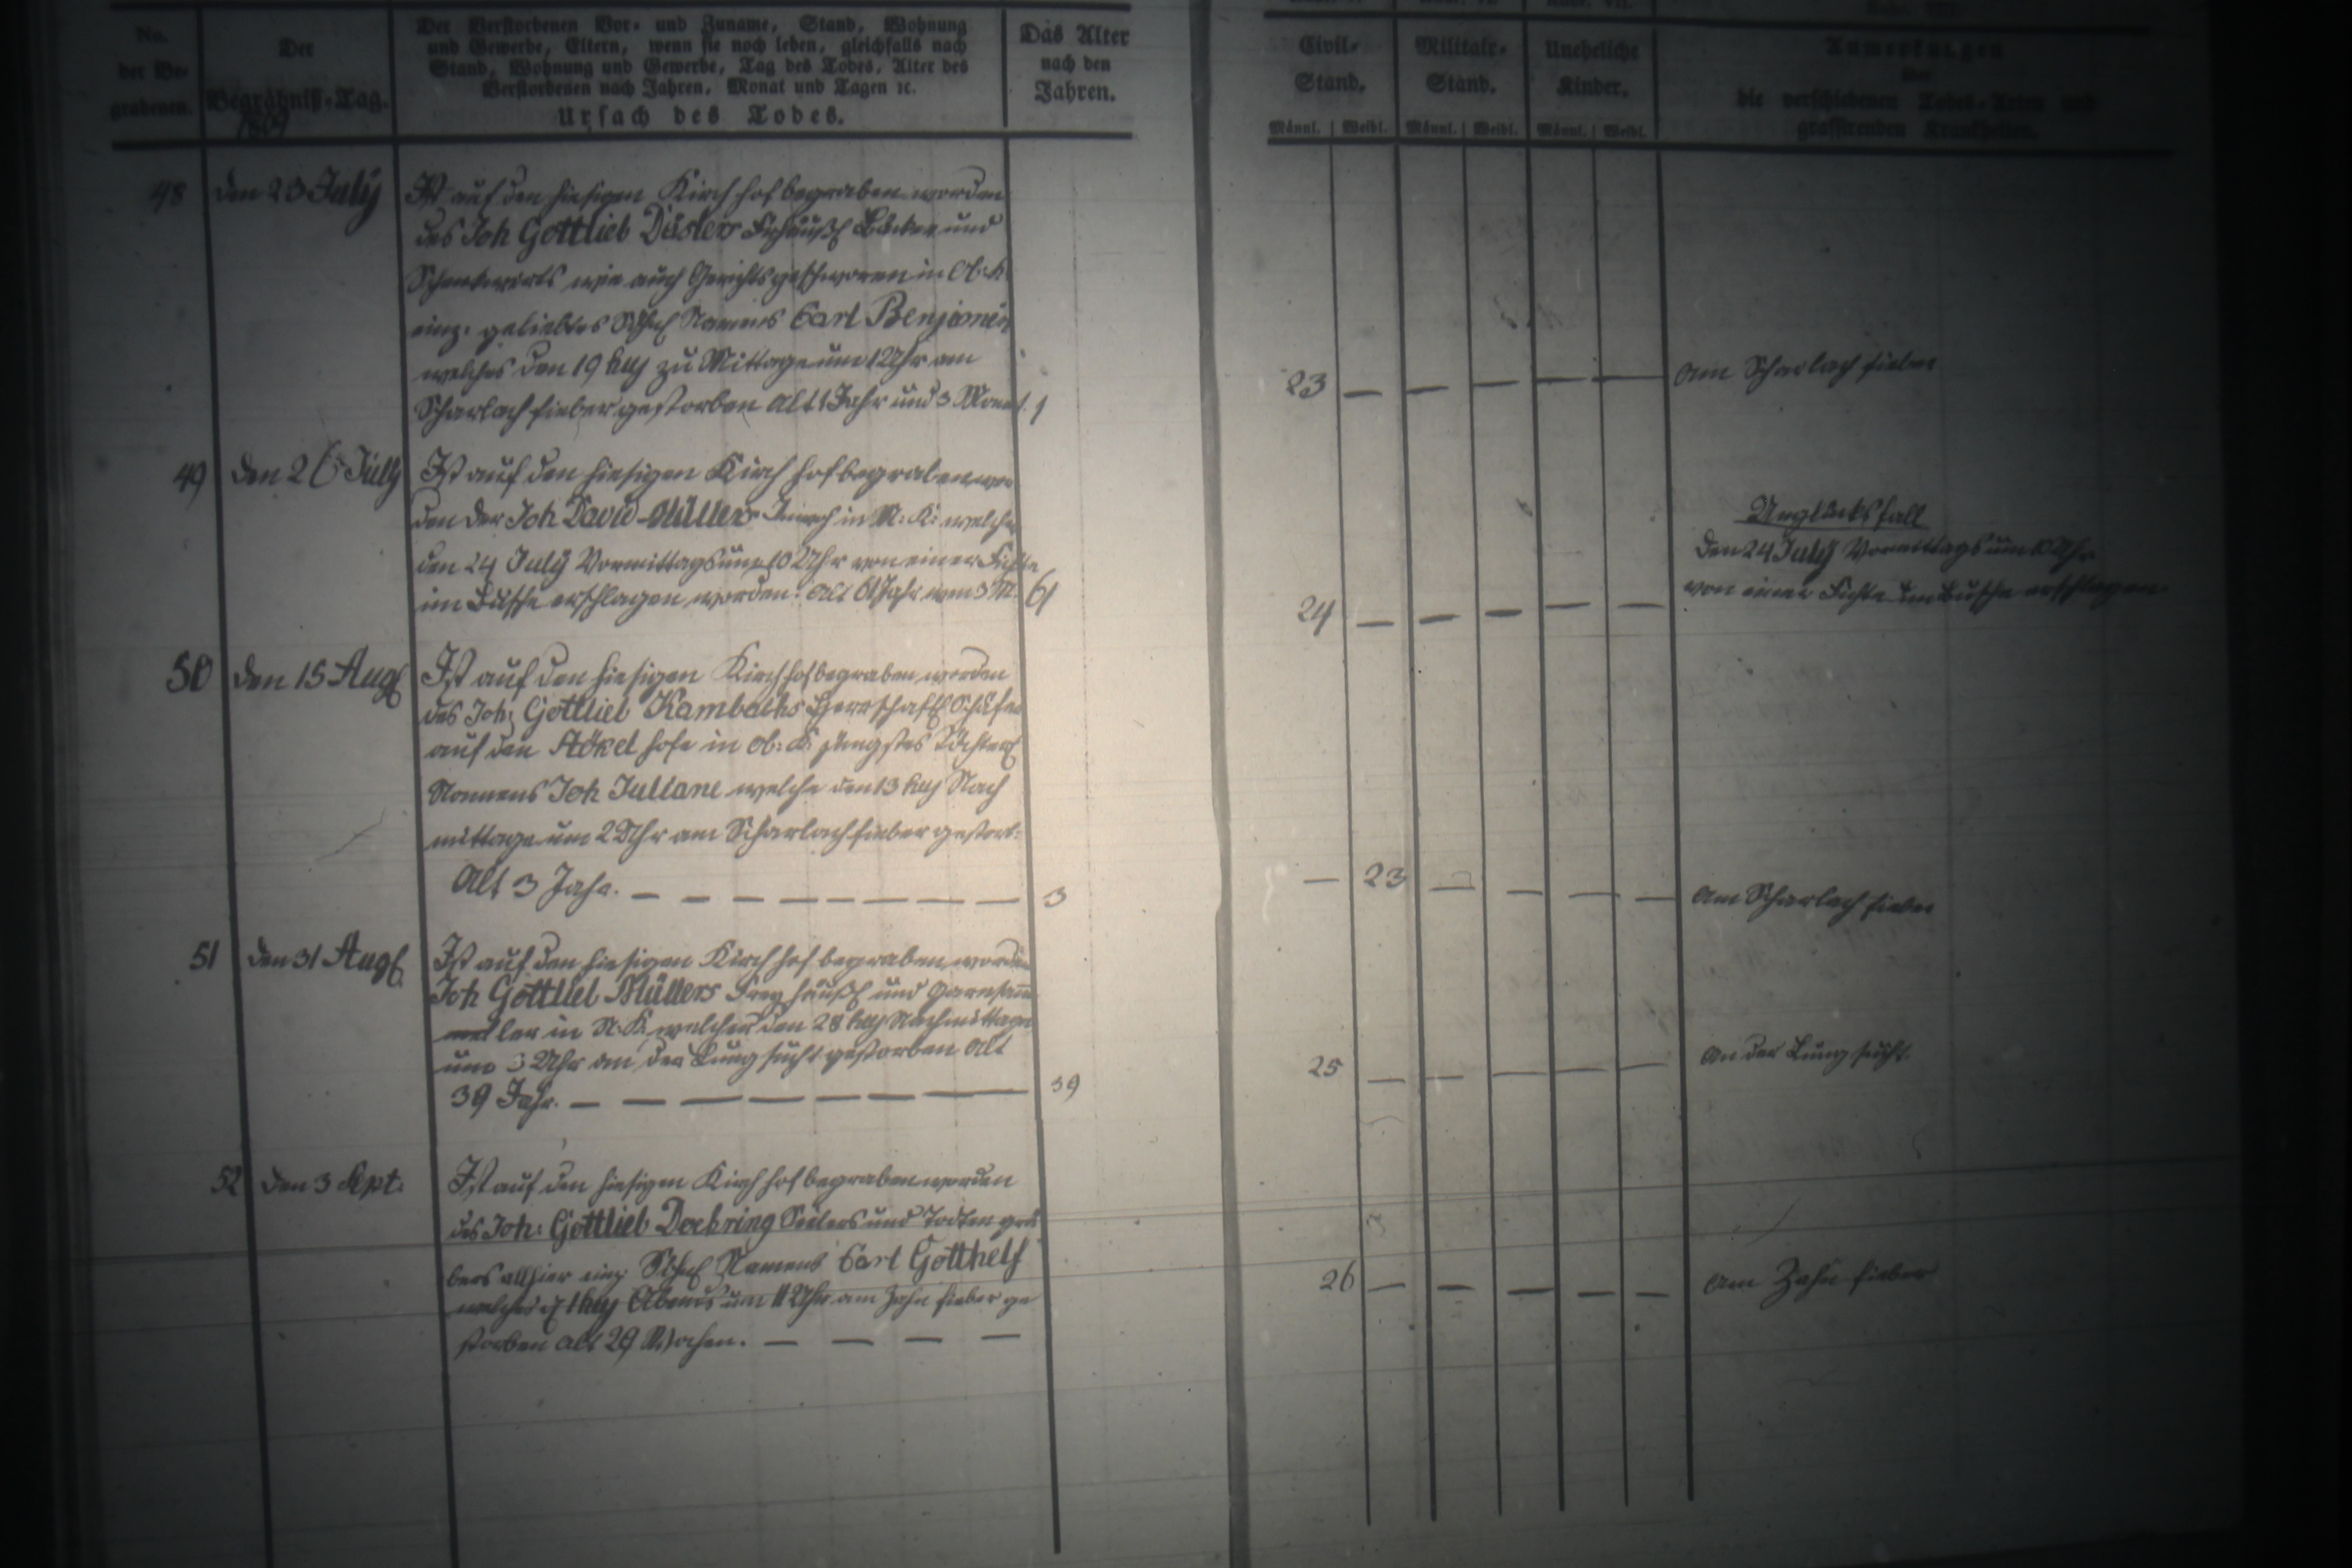 No.
der Be-
grabenen.
Der
Begräbniß-Tag.
1809
Der Verstorbenen Vor- und Zuname, Stand, Wohnung
und Gewerbe, Eltern, wenn sie noch leben, gleichfalls nach
Stand, Wohnung und Gewerbe, Tag des Todes, Alter des
Verstorbenen nach Jahren, Monat und Tagen ꝛc.
Ursach des Todes.
Das Alter
nach den
Jahren.
Civil-
Stand.
Militair-
Stand.
Uneheliche
Kinder.
Anmerkungen
über
die verschiedenen Todes-Arten und
grassirenden Krankheiten.
Männl. Weibl. Männl. Weibl. Männl. Weibl.
48 den 23 July
Ist auf den hiesigen Kirch hof begraben worden
des Joh Gottlieb Düsters Bäcker und
Schenkwirts wie auch Gerichtsgeschworen in Ob: K:
einz. geliebtes Söhnl Namens Carl Benjamin
welches den 19 huj zu Mittage um 1 Uhr am
Scharlach fieber gestorben Alt 1 Jahr und 3 Monat. 1
23 — — — — —
Am Scharlach fieber
49 den 26 July
Ist auf den hiesigen Kirch hof begraben wor
den der Joh David Müller in N: K: welcher
den 24 July Vormittags um 10 Uhr von einer Fichte
im Busche erschlagen worden. Alt 61 Jahr 3 M. 61
24 — — — — —
Unglücksfall
den 24 July Vormittags um 10 Uhr
von einer Fichte im Busche erschlagen.
50 den 15 Aug
Ist auf den hiesigen Kirch hof begraben worden
des Joh: Gottlieb Kambachs Herrschaftl Schäfer
auf den Stökel hofe in Ob: K: jüngstes Töchterl
Namens Joh Juliane welche den 13 huj Nach
mittage um 2 Uhr am Scharlach fieber gestorb:
Alt 3 Jahr. — — — — — — — — 3
— 23 — — — —
Am Scharlach fieber
51 den 31 Aug
Ist auf den hiesigen Kirch hof begraben worden
Joh Gottlieb Müllers Frey häußl und Garnsam̄
ler in N. K. welcher den 28 huj Nachmittage
um 3 Uhr an der Lungsucht gestorben Alt
39 Jahr. — — — — — — — 39
25 — — — — —
An der Lungsucht.
52 den 3 Sept:
Ist auf den hiesigen Kirch hof begraben worden
des Joh: Gottlieb Doehring Seilers und Todten grä
bers allhier einz. Söhnl Namens Carl Gotthelf
welches 1 huj Abends um 11 Uhr am Zahn fieber ge
storben alt 29 Wochen. — — — —
26 — — — — —
Am Zahn fieber